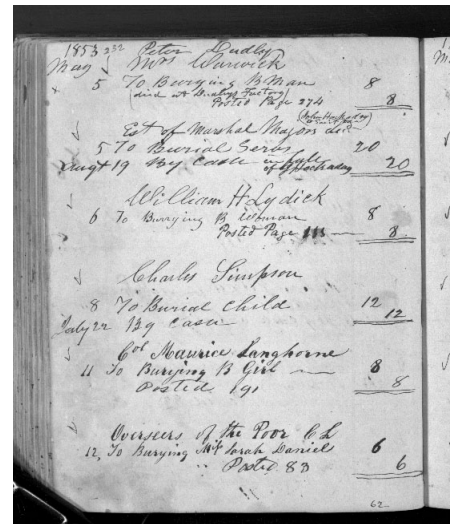 1853 232 Peter Dudly
May Mrs Warwick
5 To Burying B Man 8
(died at Dudlys Factory)
Posted Page 274 8
Est of Marshal Majors dec
5 To Burial Servs 20
Augt 19 By Cash in full 20
William H Lydick
6 To Burying B Woman 8
Posted Page 8
Charles Simpson
8 To Burial Child 12
July 22 By Cash 12
Col Maurice Langhorne
11 To Burying B Girl 8
Posted 191 8
Overseers of the Poor C L
12, To Burying Mrs Sarah Daniel 6
" Posted 83 6
62